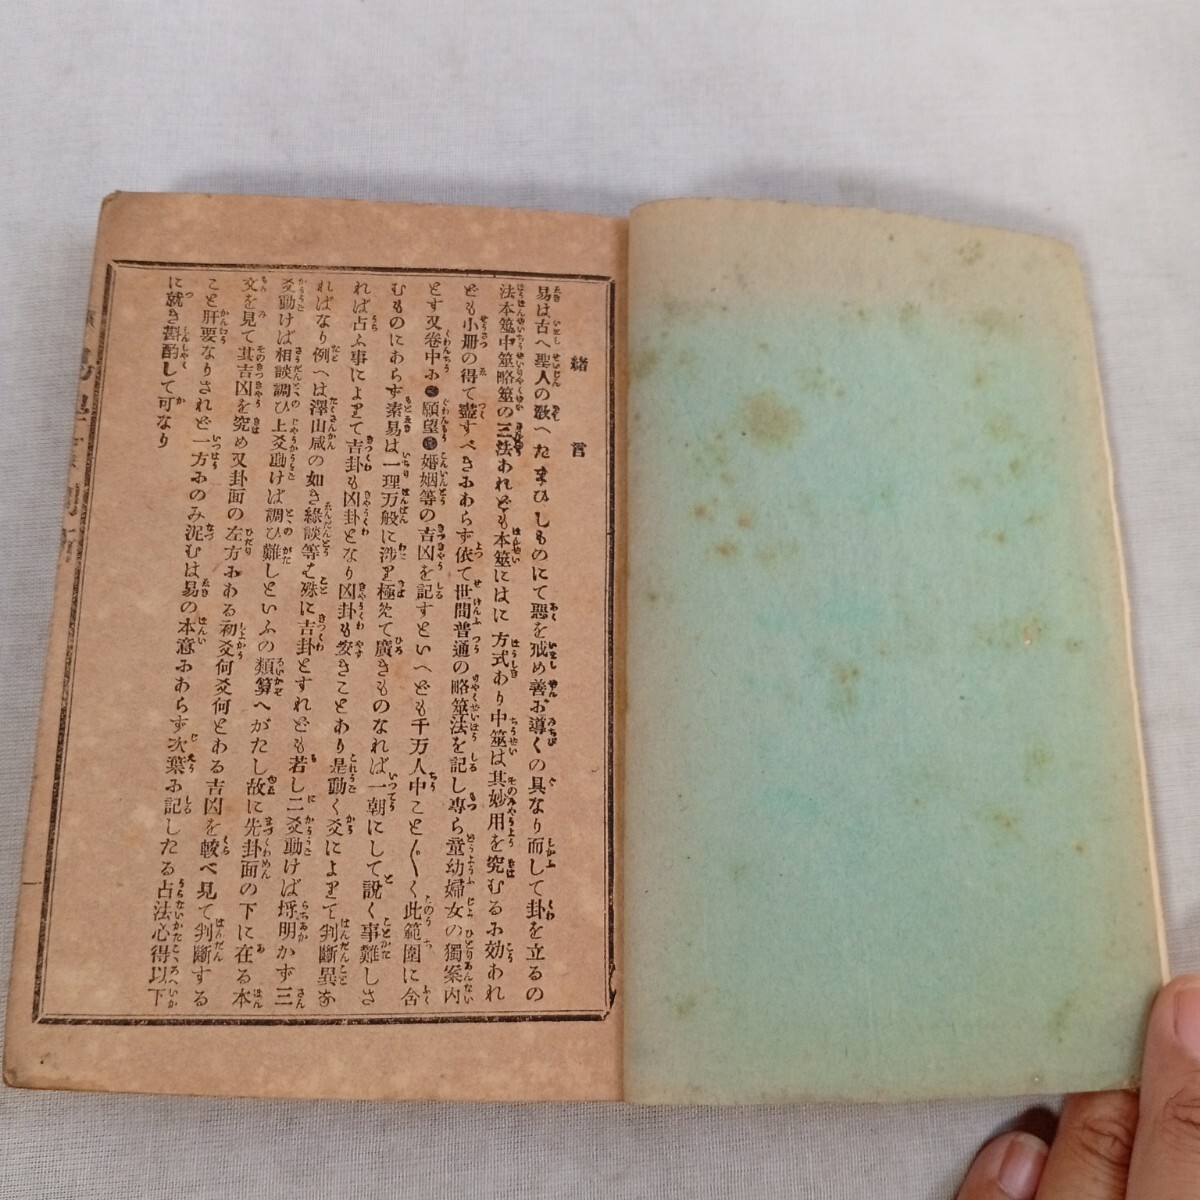 緒言
易は古へ聖人の敎へたまひしものにて惡を戒め善お導くの具なり而して卦を立るの
法本筮中筮略筮の三法われども本筮にはに方式あり中筮は其妙用を究むるみ効われ
ども小冊の得て盡すべきみあらず依て世間普通の略筮法を記し專ら童幼婦女の獨案内
とす又卷中み願望婚姻等の吉凶を記すといへども千万人中こと〴〵く此範圍に含
むものにあらず素易は一理万般に渉り極めて廣きものなれば一朝にして說く事難しさ
れば占ふ事によりて吉卦も凶卦となり凶卦も變きことあり是動く爻によりて判斷異な
ればなり例へは澤山咸の如き綠談等は殊に吉卦とすれども若し二爻動けば埒明かず三
爻動けば相談調ひ上爻動けば調ひ難しといふの類算へがたし故に先卦面の下に在る本
文を見て其吉凶を究め又卦面の左方みある初爻何爻何とある吉凶を較べ見て判斷する
こと肝要なりされど一方みのみ泥むは易の本意みあらず次葉み記したる占法心得以下
に就き斟酌して可なり